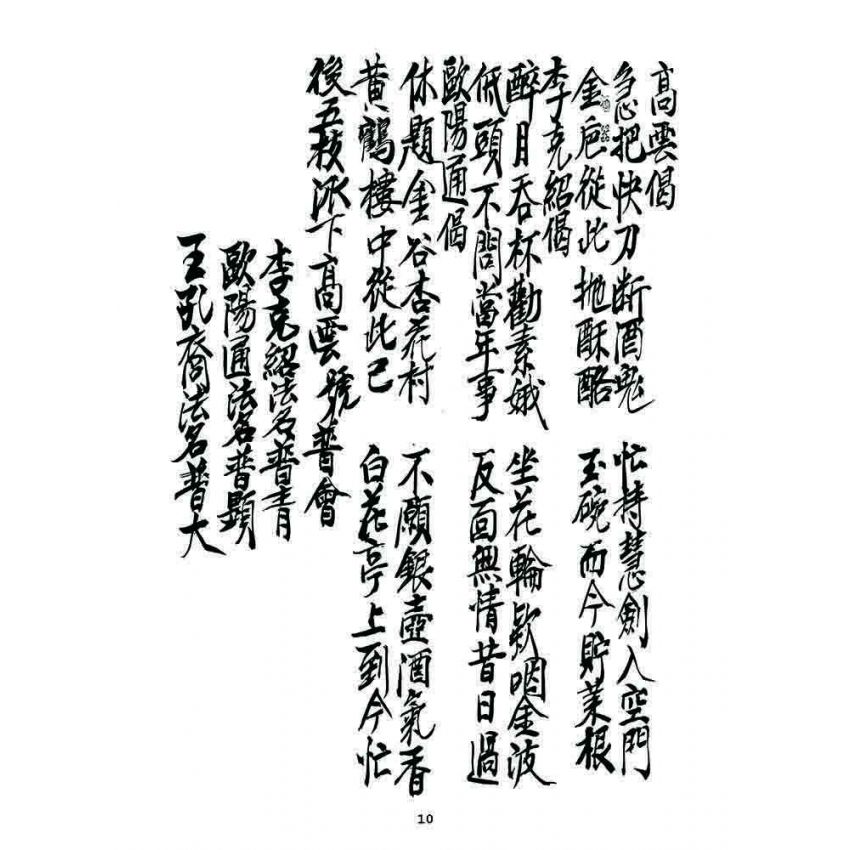 高雲偈
急把快刀断酒鬼 忙持慧劍入空門
金卮從此抛酥酪 玉碗而今貯菜根
李克紹偈
醉月吞杯勸素娥 坐花輪欵咽金波
低頭不問當年事 反面無情昔日過
歐陽通偈
休題金谷杏花村 不願銀壺酒氣香
黄鶴樓中從此已 白花亭上到今忙
後五枝派下高雲號普會
李克紹法名普青
歐陽通法名普顯
王孔裔法名普大
10